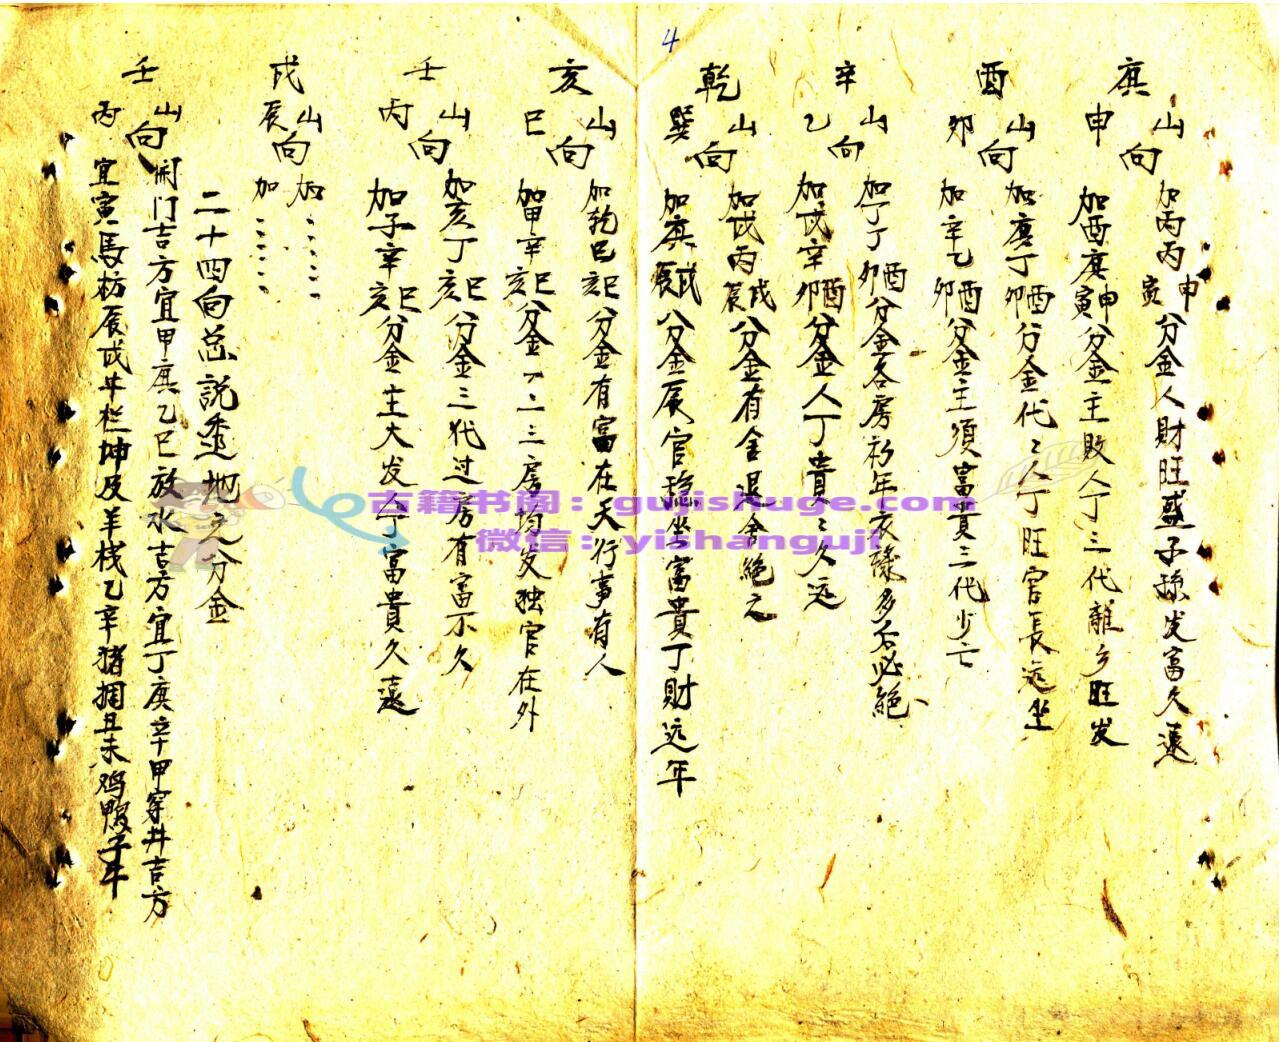 4
庚
申
山向
加丙丙寅申分金人財旺盛子孫发富久遠
加酉庚寅申分金主敗人丁三代離乡旺发
酉
卯
山向
加庚丁卯酉分金代々人丁旺官長远坐
加辛乙卯酉分金主須富貴三代少亡
辛
乙
山向
加丁丁卯酉分金各房衫年衣祿多后必絕
加戌辛卯酉分金人丁貴々久远
乾
巽
山向
加戌丙辰戌分金有舍退舍絕之
加庚辰戌分金辰官穩坐富貴丁財远年
亥
巳
山向
加乾巳亥巳分金有富在天行事有人
加甲辛亥巳分金一二三房均发独官在外
壬
丙
山向
加亥丁亥巳分金三代过房有富不久
加子辛亥巳分金主大发人丁富貴久遠
戌
辰
山向
加
加
二十四向总說透地之分金
壬
丙
山向
開门吉方宜甲庚乙巳放水吉方宜丁庚辛甲穿井吉方
宜寅馬枋辰戌牛栏坤及羊栈乙辛猪捆丑未鸡鴨子牛
古籍书阁：gujishuge.com
微信：yishanguji